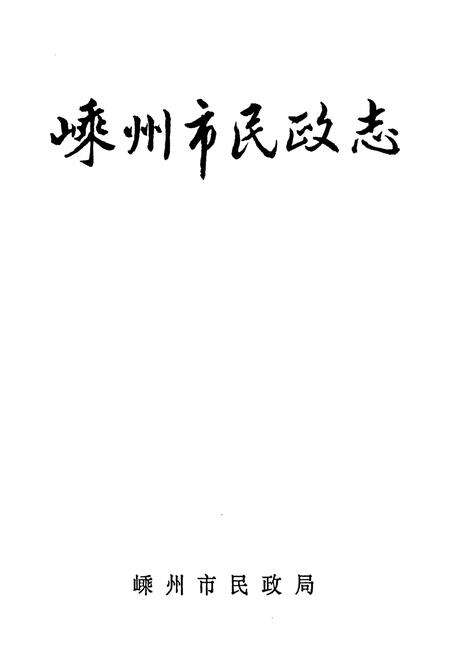 嵊州市民政志
嵊州市民政局